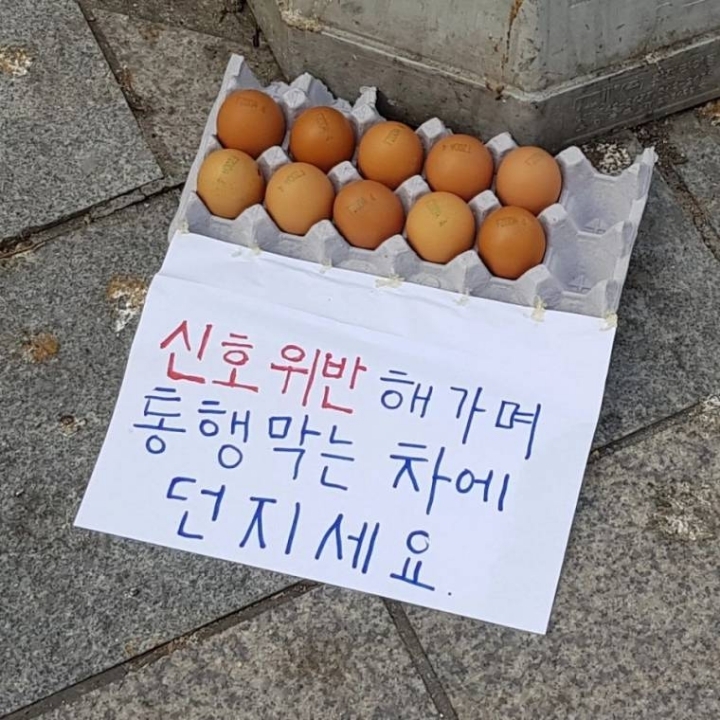 신호위반 해가며
통행 막는 차에
던지세요.